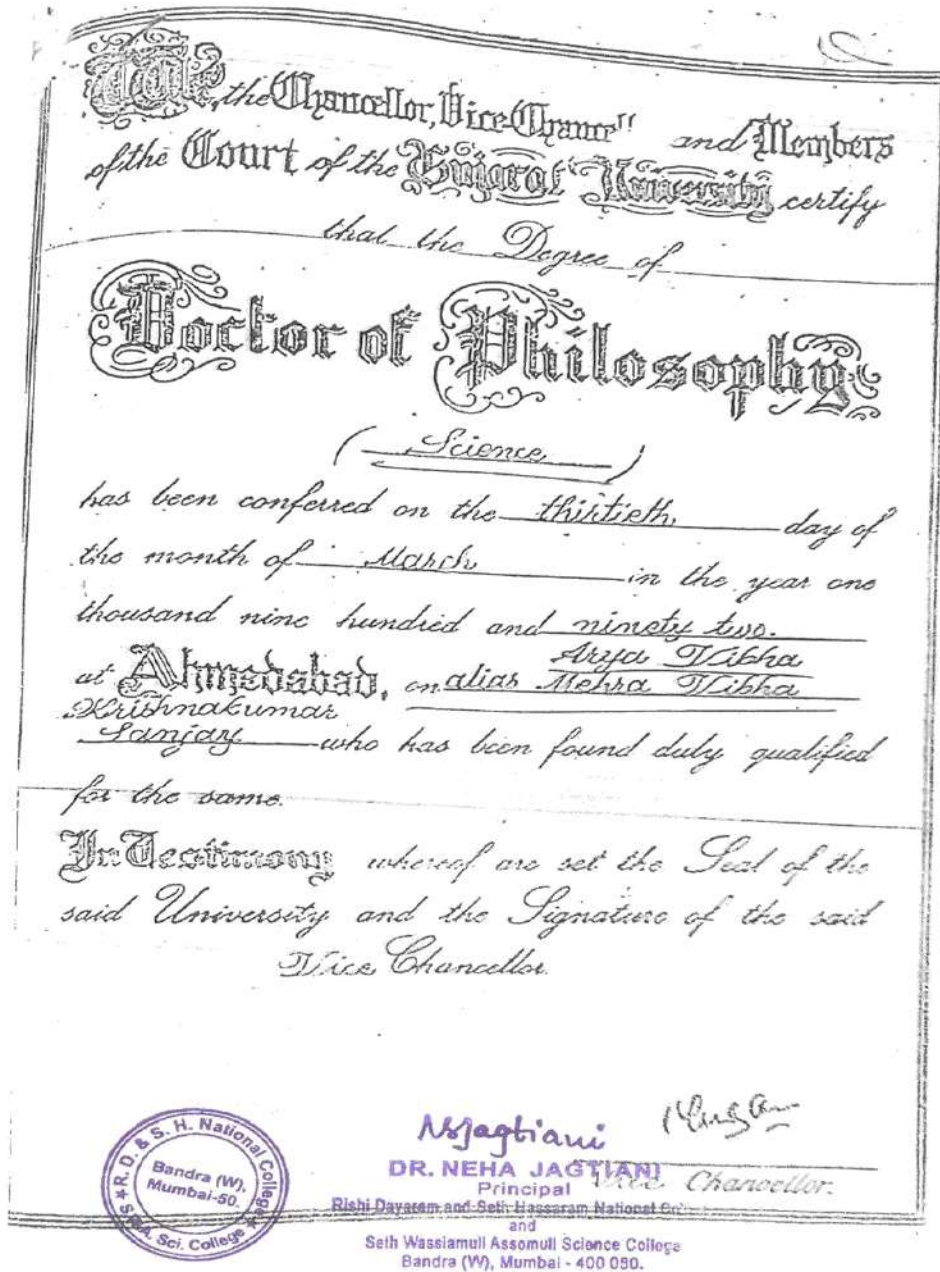 We, the Chancellor, Vice-Chancell and Members
of the Court of the Gujarat University certify
that the Degree of
Doctor of Philosophy
( Science )
has been conferred on the thirtieth day of
the month of March in the year one
thousand nine hundred and ninety two.
Arya Vibha
at Ahmedabad, on alias Mehra Vibha
Krishnakumar
Sanjay who has been found duly qualified
for the same.
In Testimony whereof are set the Seal of the
said University and the Signature of the said
Vice Chancellor.
NSJagtiani
DR. NEHA JAGTIANI
Vice Chancellor.
Principal
Rishi Dayaram and Seth Hassaram National
and
Seth Wassiamull Assomull Science College
Bandra (W), Mumbai - 400 050.
R. D. & S. H. National College
Bandra (W),
Mumbai-50.
Sci. College